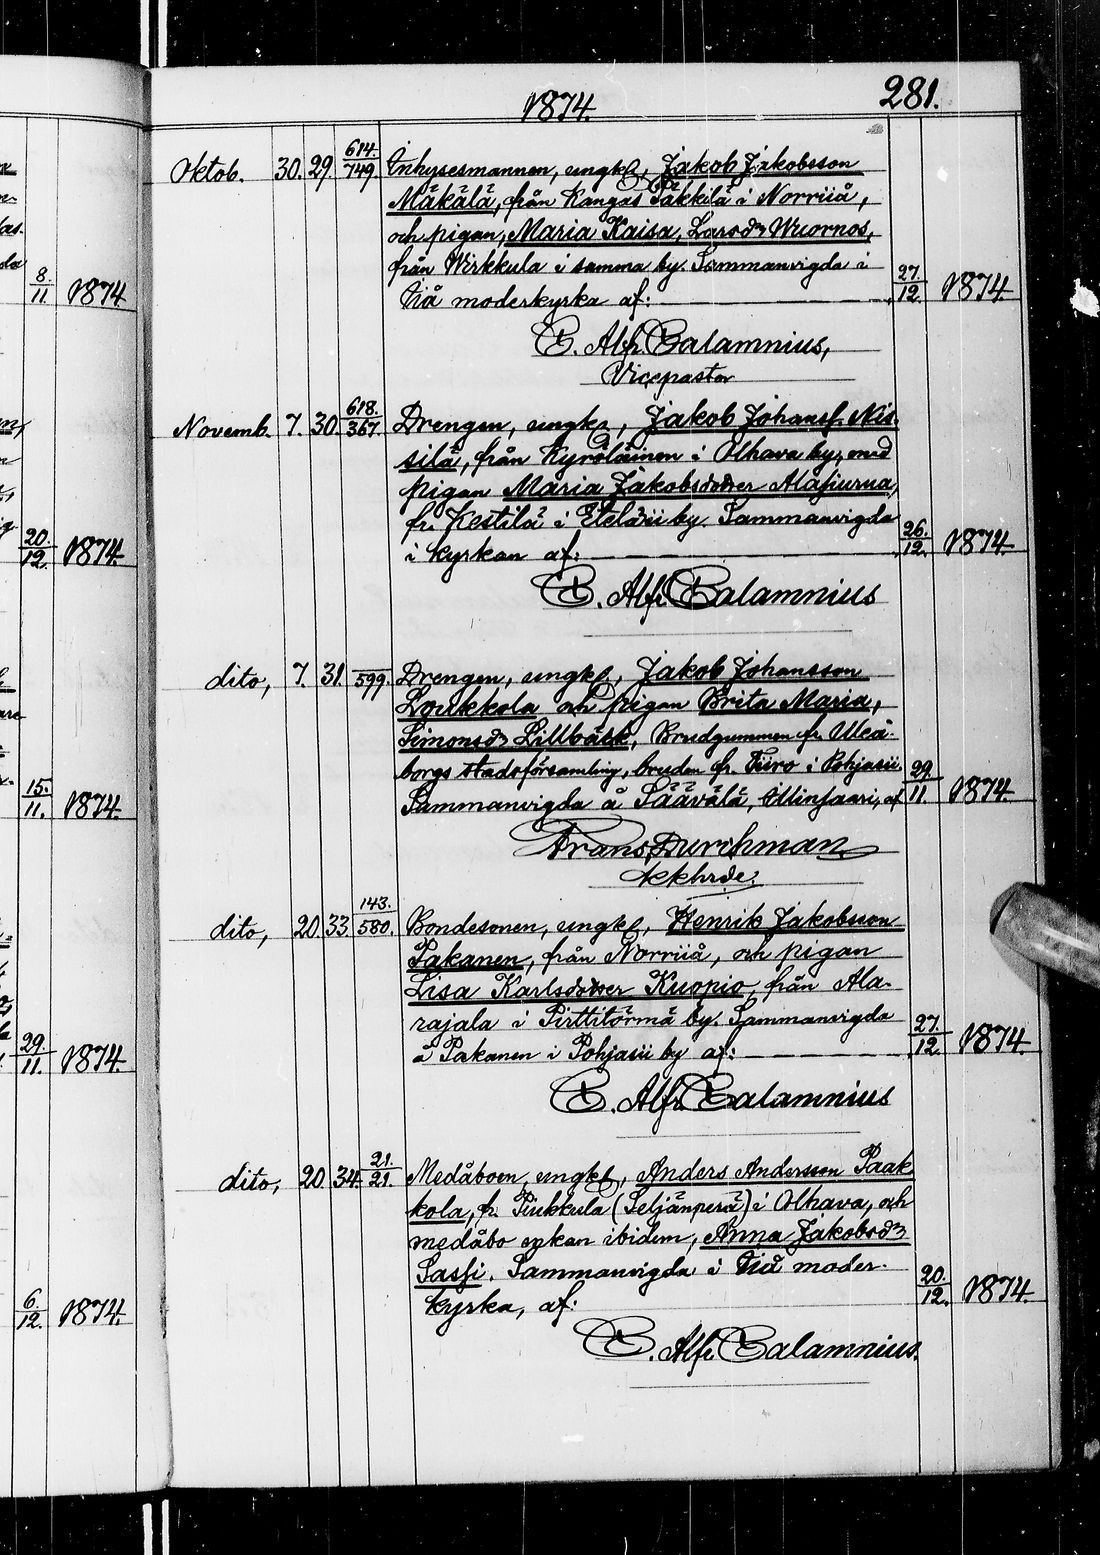 281.
1874.
Oktob. 30. 29. 614. 749. Inhysesmannen, ungk., Jakob Jakobsson
Mäkälä, från Kangas Pakkilä i Norriiå,
och pigan, Maria Kaisa, Larsdr Wuornos,
från Wirkkula i samma by. Sammanvigda i
Iiå moderkyrka af: 27. 12. 1874
C. Alfr. Calamnius,
Vicepastor
Novemb. 7. 30. 618. 367 Drengen, ungk., Jakob Johanss. Nis-
silä, från Kyröläinen i Olhava by, med
pigan Maria Jakobsdotter Alasiurua,
fr. Kestilä i Eteläii by. Sammanvigda
i kyrkan af: 26. 12. 1874.
C. Alfr. Calamnius
dito, 7. 31. 599. Drengen, ungk., Jakob Johansson
Loukkola och pigan Brita Maria,
Simonsdr Lillbäck, Brudgummen fr. Uleå-
borgs stadsförsamling, bruden fr. Tiiro i Pohjasii.
Sammanvigda å Säävälä, Illinsaari, af 29. 11. 1874.
Frans Durchman
dito, 20. 33. 143. 580. Bondesonen, ungk., Henrik Jakobsson
Pakanen, från Norriiå, och pigan
Lisa Karlsdotter Kuopio, från Ala-
rajala i Pirttitörmä by. Sammanvigda
å Pakanen i Pohjasii by af: 27. 12. 1874.
C. Alfr. Calamnius
dito, 20. 34. 21. 21. Medåboen, ungk., Anders Andersson Paak-
kola, fr. Piukkula (Seljänperä) i Olhava, och
medåbo enkan ibidem, Anna Jakobsdr
Sassi. Sammanvigda i Iiå moder-
kyrka, af: 20. 12. 1874.
C. Alfr. Calamnius.
8. 11 1874
20. 12. 1874.
15. 11. 1874.
29. 11. 1874.
6. 12. 1874.